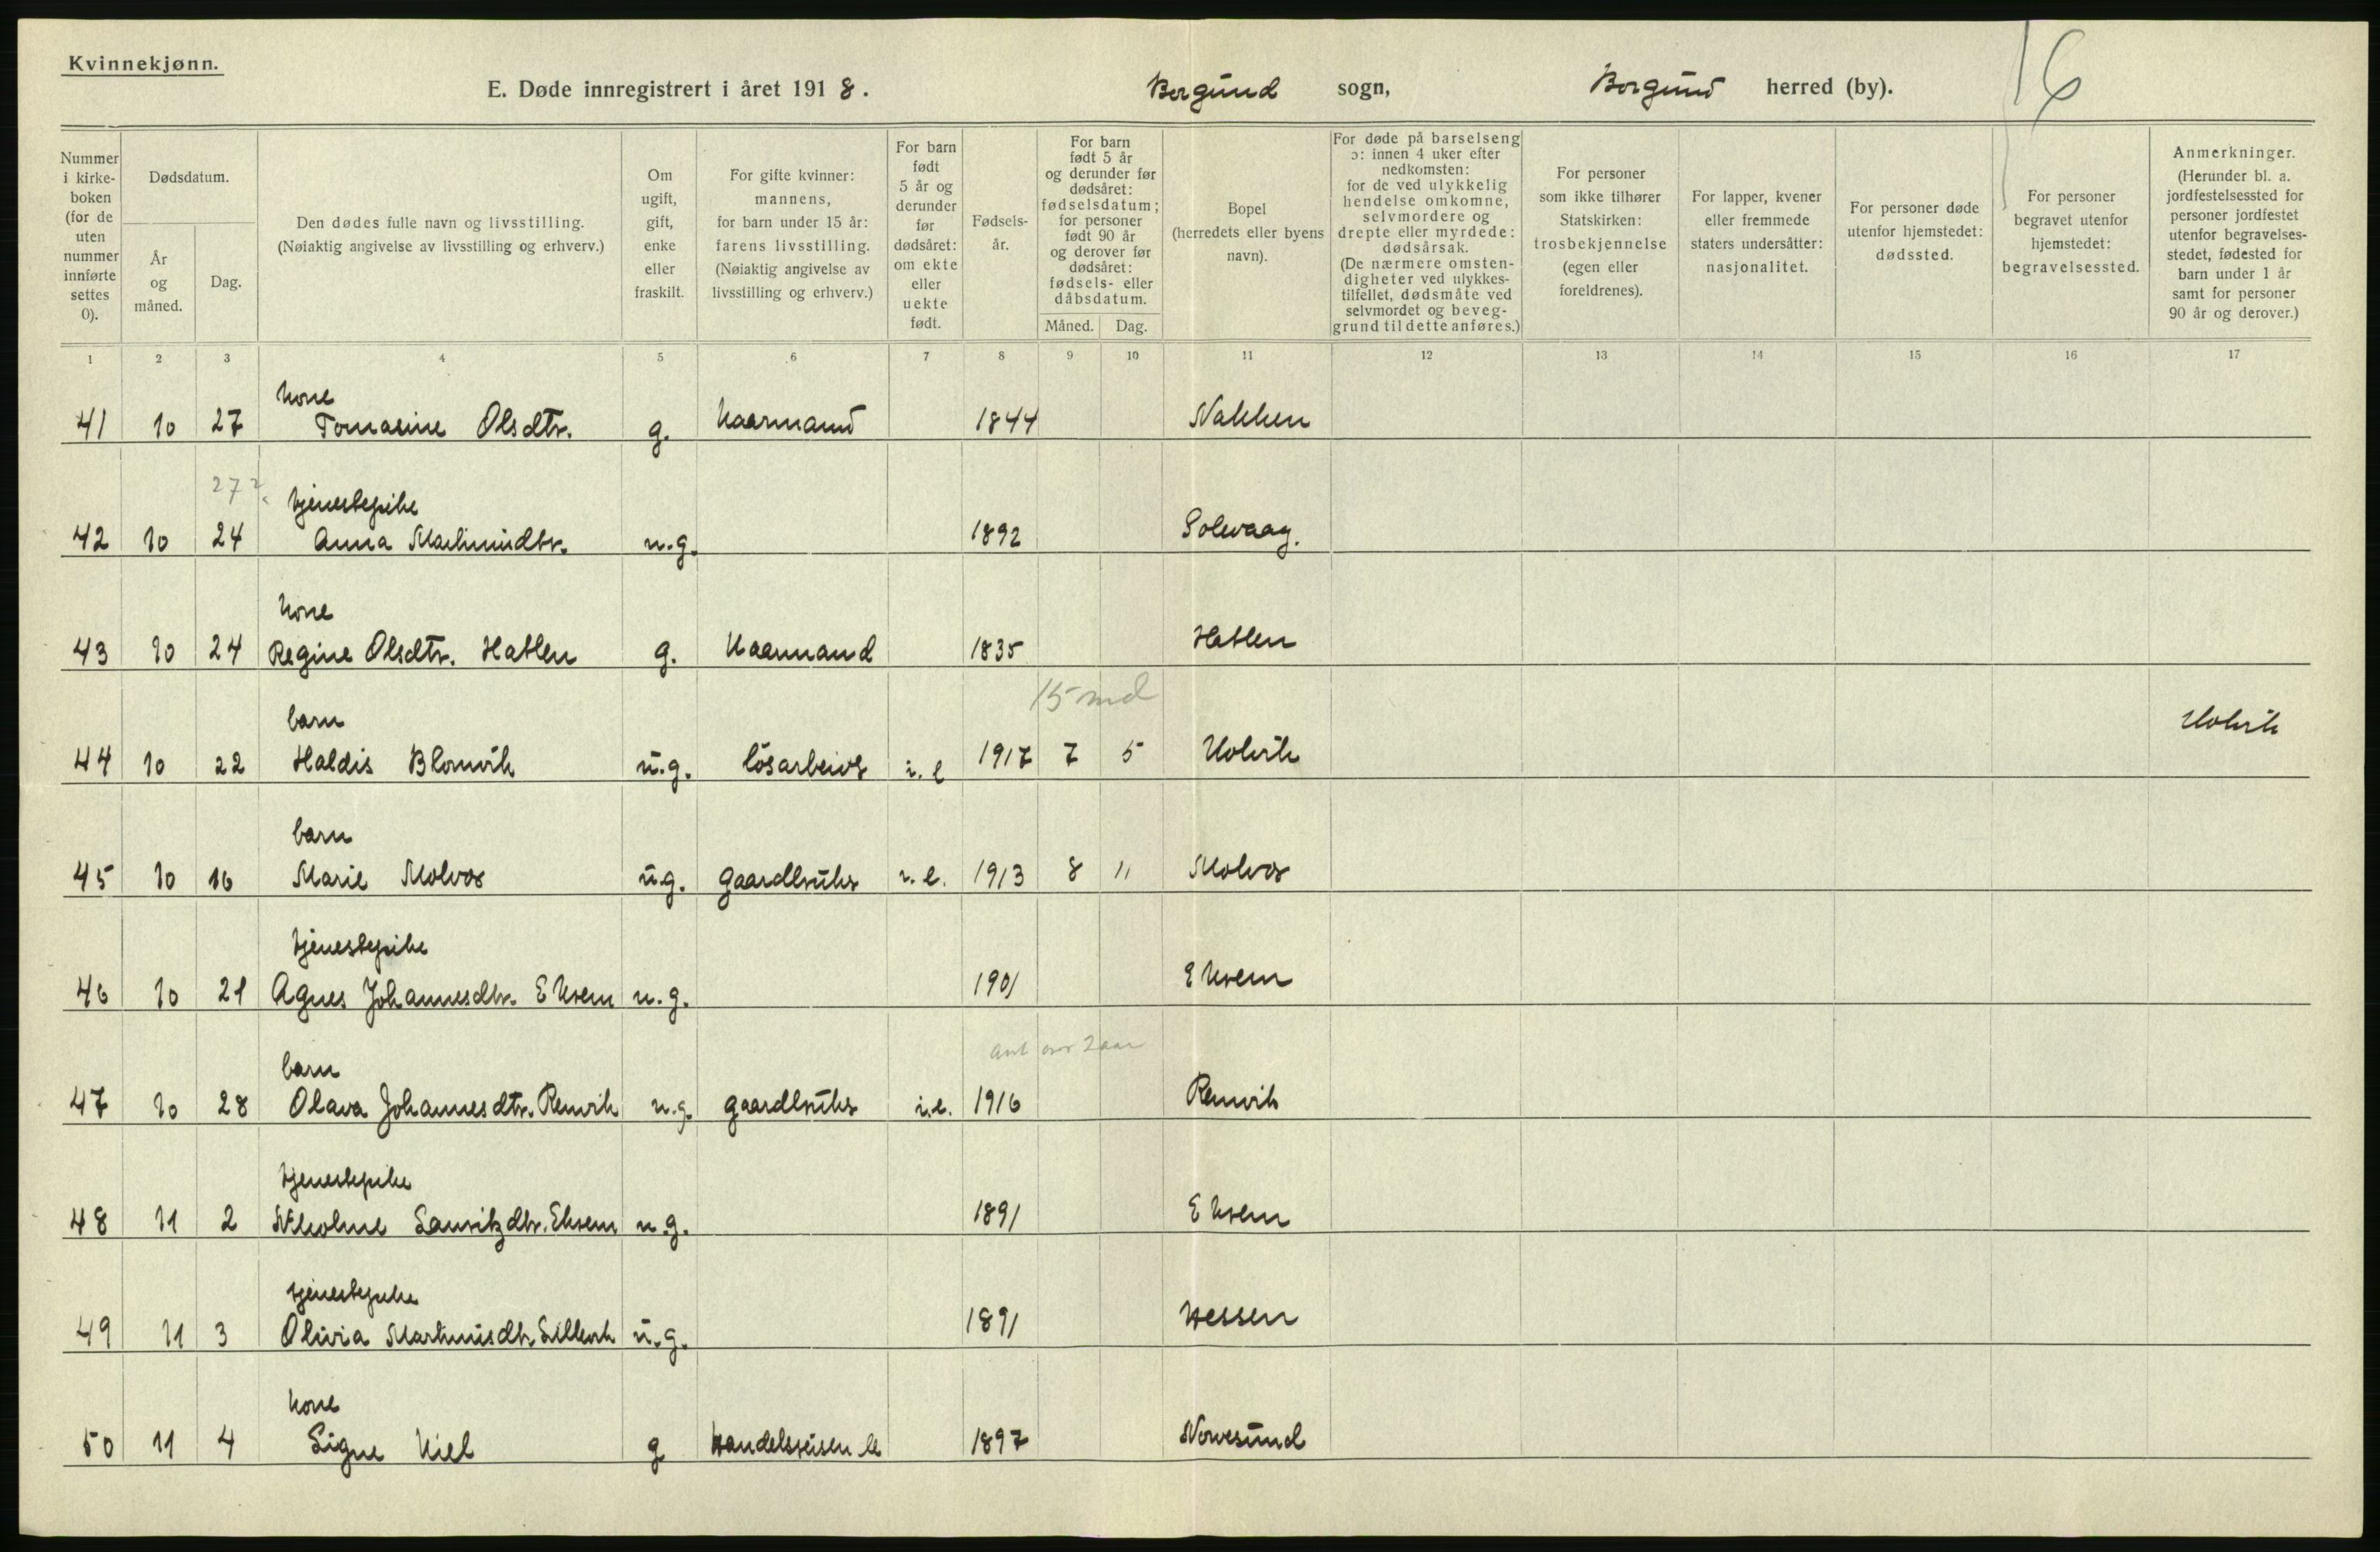 Kvinnekjønn.
E. Døde innregistrert i året 1918. Borgund sogn, Borgund herred (by). 16
Nummer i kirke-boken (for de uten nummer innførte settes 0).
Dødsdatum.
År og måned.
Dag.
Den dødes fulle navn og livsstilling.
(Nøiaktig angivelse av livsstilling og erhverv.)
Om ugift, gift, enke eller fraskilt.
For gifte kvinner: mannens, for barn under 15 år: farens livsstilling.
(Nøiaktig angivelse av livsstilling og erhverv.)
For barn født 5 år og derunder før dødsåret: om ekte eller uekte født.
Fødsels-år.
For barn født 5 år og derunder før dødsåret: fødselsdatum; for personer født 90 år og derover før dødsåret: fødsels- eller dåbsdatum.
Måned.
Dag.
Bopel (herredets eller byens navn).
For døde på barselseng ɔ: innen 4 uker efter nedkomsten: for de ved ulykkelig hendelse omkomne, selvmordere og drepte eller myrdede: dødsårsak.
(De nærmere omsten-digheter ved ulykkes-tilfellet, dødsmåte ved selvmordet og beveg-grund til dette anføres.)
For personer som ikke tilhører Statskirken: trosbekjennelse (egen eller foreldrenes).
For lapper, kvener eller fremmede staters undersåtter: nasjonalitet.
For personer døde utenfor hjemstedet: dødssted.
For personer begravet utenfor hjemstedet: begravelsessted.
Anmerkninger.
(Herunder bl. a. jordfestelsessted for personer jordfestet utenfor begravelses-stedet, fødested for barn under 1 år samt for personer 90 år og derover.)
1 2 3 4 5 6 7 8 9 10 11 12 13 14 15 16 17
kone
41 10 27 Tomasine Olsdtr. g. Kaarmand 1844 Nakken
27?
tjenestepike
42 10 24 Anna Martinusdtr. u.g. 1892 Solevaag.
kone
43 10 24 Regine Olsdtr. Hatlen g. Kaarmand 1835 Hatlen
15 md
barn
44 10 22 Haldis Blomvik u.g. løsarbeider i.e 1917 7 5 Kolvik Kolvik
barn
45 10 16 Marie Molvær u.g. gaardbruker i.e. 1913 8 11 Molvær
tjenestepike
46 10 21 Agnes Johannesdtr. Eksem u.g. 1901 Eksem
ant over 2 aar
barn
47 10 28 Olava Johannesdtr. Remvik u.g. gaardbruker i.e. 1916 Remvik
tjenestepike
48 11 2 Nikoline Lauritzdtr. Eksem u.g. 1891 Eksem
tjenestepike
49 11 3 Olivia Martinusdtr u.g. 1891 Hessen
kone
50 11 4 Signe Kiel g Handelsreisende 1897 Norvesund